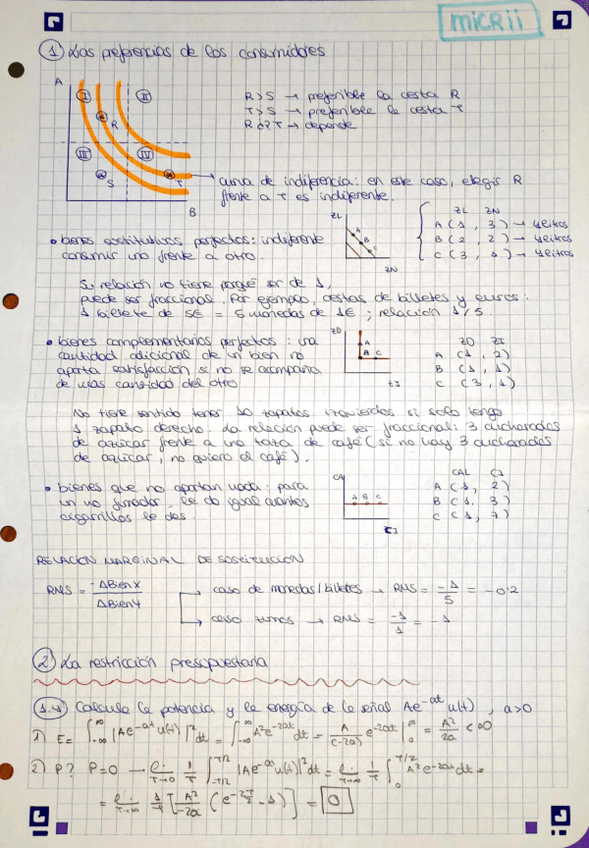 MICRII
1 Las preferencias de los consumidores
A
I
II
R
III
IV
S
T
B
R>S → preferible la cesta R
T>S → preferible la cesta T
R o P T → depende
curva de indiferencia: en este caso, elegir R
frente a T es indiferente.
• bienes sustitutivos perfectos: indiferente
consumir uno frente a otro.
ZL
A
B
C
ZN
ZL ZN
A (1, 3) → 4 litros
B (2, 2) → 4 litros
C (3, 1) → 4 litros
Su relación no tiene porqué ser de 1,
puede ser fraccional. Por ejemplo, cestas de billetes y euros.
1 billete de 5€ = 5 monedas de 1€; relación 1/5
• bienes complementarios perfectos: una
cantidad adicional de un bien no
aporta satisfacción si no se acompaña
de más cantidad del otro
ZD
A
B C
ZI
ZD ZI
A (1, 2)
B (1, 1)
C (3, 1)
No tiene sentido tener 10 zapatos izquierdos si solo tengo
1 zapato derecho. La relación puede ser fraccional: 3 cucharadas
de azúcar frente a una taza de café (si no hay 3 cucharadas
de azúcar, no quiero el café).
• bienes que no aportan nada: para
un no fumador, le da igual cuantos
cigarrillos le des.
CA
A B C
CJ
CAL CJ
A (1, 2)
B (1, 3)
C (1, 7)
RELACION MARGINAL DE SUSTITUCIÓN
RMS = -ΔBien X / ΔBien Y
→ caso de monedas/billetes → RMS = -1/5 = -0'2
→ caso zumos → RMS = -1/1 = -1
2 La restricción presupuestaria
1.4 Calcula la potencia y la energía de la señal Ae^-at u(t), a>0
1) E = ∫_-∞^∞ |Ae^-at u(t)|² dt = ∫_-∞^∞ A² e^-2at dt = A/(-2a) e^-2at |_0^∞ = A²/2a < ∞
2) P? P=0 → l. T→∞ 1/T ∫_-T/2^T/2 |Ae^-at u(t)|² dt = l. T→∞ 1/T ∫_0^T/2 A² e^-2at dt =
= l. T→∞ 1/T [A²/-2a (e^-2T/2 - 1)] = 0